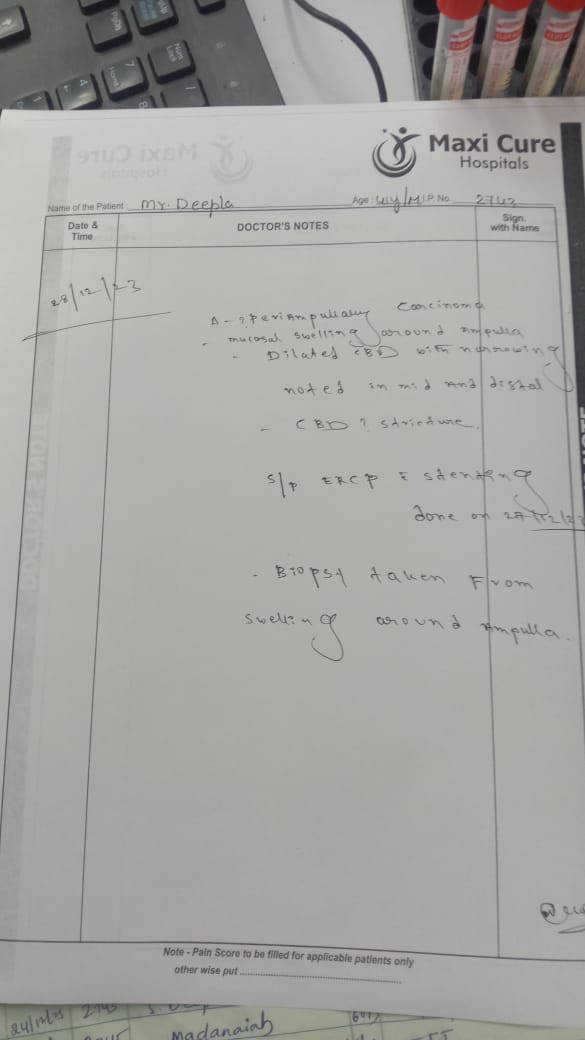 Maxi Cure
Hospitals
Name of the Patient: Mr. Deepla Age: 44y/M I.P. No. 2743
Date & Time DOCTOR'S NOTES Sign. with Name
28/12/23
Δ - ? Periampullary Carcinoma
- mucosal swelling around Ampulla
- Dilated CBD with narrowing
noted in mid and distal
- CBD ? stricture.
S/P ERCP c̄ stenting
done on 27/12/23
- Biopsy taken From
swelling around Ampulla.
Note - Pain Score to be filled for applicable patients only
other wise put
2743
Madanaiah
DOCTOR'S NOTE